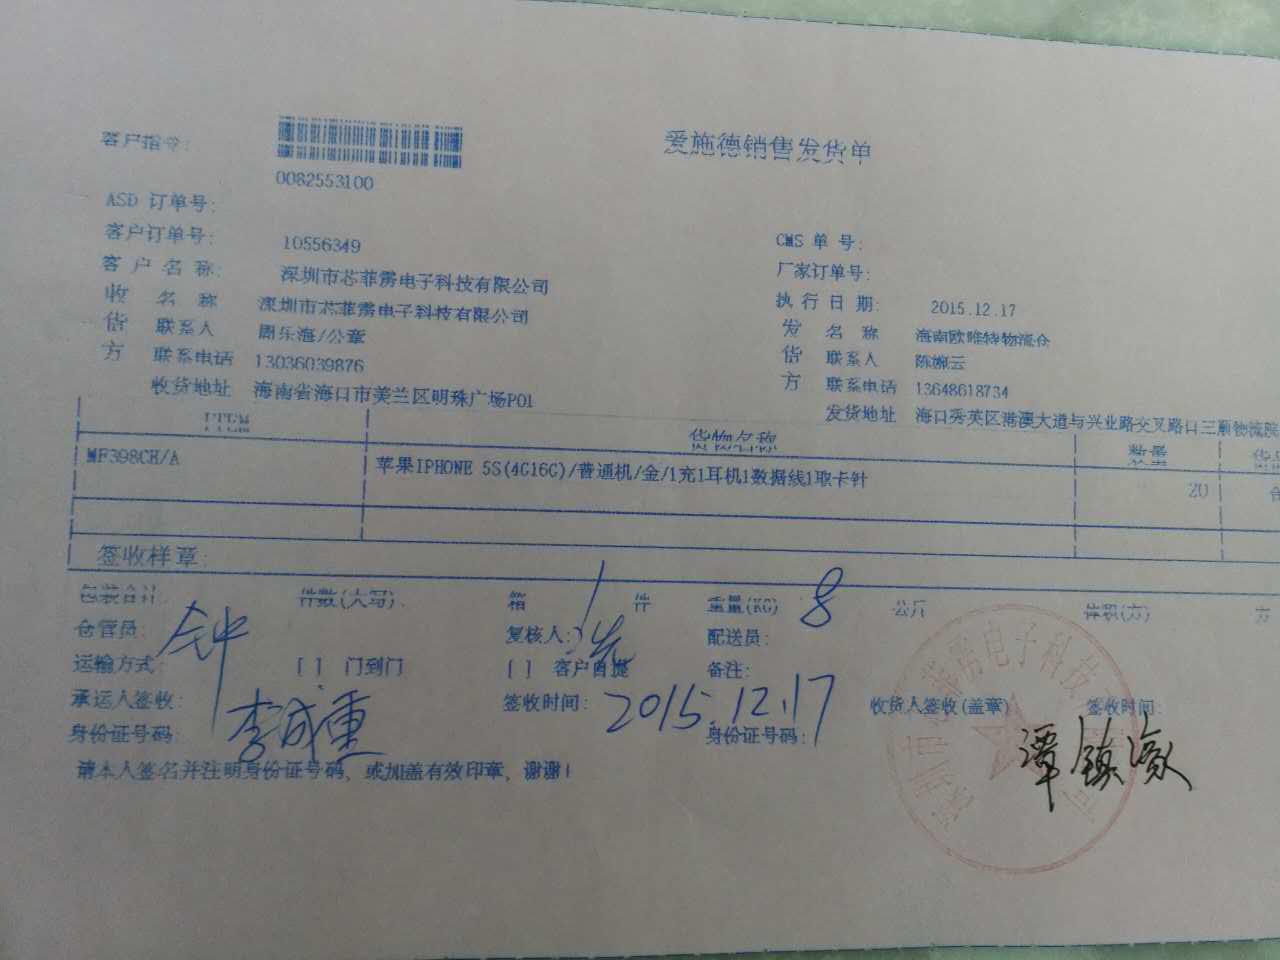 爱施德销售发货单
客户指令:
0082553100
ASD 订单号:
客户订单号: 10556349
CMS 单 号:
客 户 名 称: 深圳市芯菲雳电子科技有限公司
厂家订单号:
收 名 称 深圳市芯菲雳电子科技有限公司
执 行 日 期: 2015.12.17
货 联系人 周乐海/公章
发 名 称 海南欧唯特物流仓
方 联系电话 13036039876
货 联系人 陈婉云
收货地址 海南省海口市美兰区明珠广场P01
方 联系电话 13648618734
发货地址 海口秀英区港澳大道与兴业路交叉路口三顺物流院
ITEM 货物名称 数量
MF398CH/A 苹果IPHONE 5S(4G16G)/普通机/金/1充1耳机1数据线1取卡针 20
签收样章:
包装合计: 件数(大写): 箱 1 件 重量(KG) 8 公斤 体积(方) 方
仓管员: 复核人: 配送员:
运输方式: [ ] 门到门 [ ] 客户自提 备注:
承运人签收: 李成重 签收时间: 2015.12.17 收货人签收(盖章) 签收时间:
身份证号码: 身份证号码:
请本人签名并注明身份证号码, 或加盖有效印章, 谢谢!